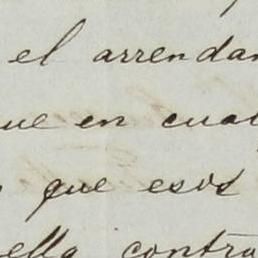 el arrendam
ue en cual
que esos
ella contra